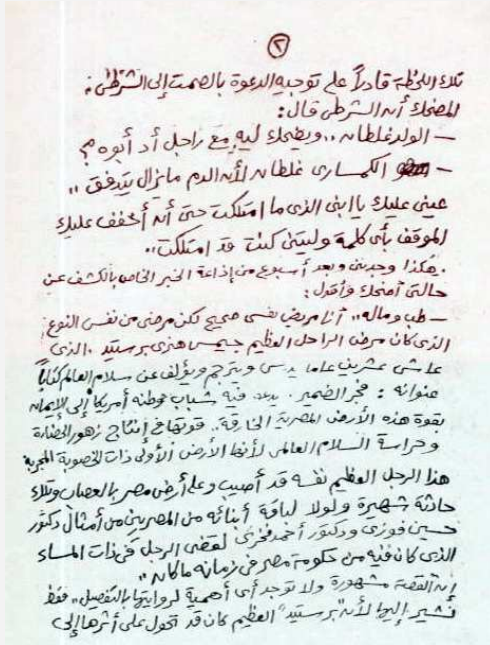 ٢
تلك اللحظة قادراً على توجيه الدعوة بالصمت إلى الشرطى :
المضحك أن الشرطى قال :
ـ الولد غلطان .. ويضحك ليه مع راجل أد أبوه ؟
ـ الكمسارى غلطان لأن الدم مازال يتدفق ..
عينى عليك يا ابنى الذى ما امتلكت حتى أن أخفف عليك
الموقف بأى كلمة وليتنى كنت قد امتلكت ..
هكذا وجدتنى وبعد أسبوع من إذاعة الخبر الخاص بالكشف عن
حالتى أضحك وأقول :
ـ طب وماله .. أنا مريض نفسى صحيح لكن مرضى من نفس النوع
الذى كان مرض الراحل العظيم جيمس هنرى برستيد . الذى
عاش عشرين عاما يدرس ويترجم ويؤلف عن سلام العالم كتاباً
عنوانه : فجر الضمير . فيه شباب وطنه أمريكا إلى الإيمان
بقوة هذه الأرض المصرية الخارقة .. قوتها فى إنتاج زهور الحضارة
وحراسة السلام العالمى لأنها الأرض الأولى ذات الخصوبة المجربة
هذا الرجل العظيم نفسه قد أصيب وعلى أرض مصر بالعصاب وتلك
حادثة شهيرة ولولا لباقة أبنائه من المصريين من أمثال دكتور
حسين فوزى ودكتور أحمد فخرى لقضى الرجل فى ذات المساء
الذى كان فيه من حكومة مصر فى زمانه ما كان ..
إن القصة مشهورة ولا توجد أى أهمية لروايتها بالتفصيل .. فقط
نشير إليها لأن "برستيد" العظيم كان قد تحول على أثرها إلى